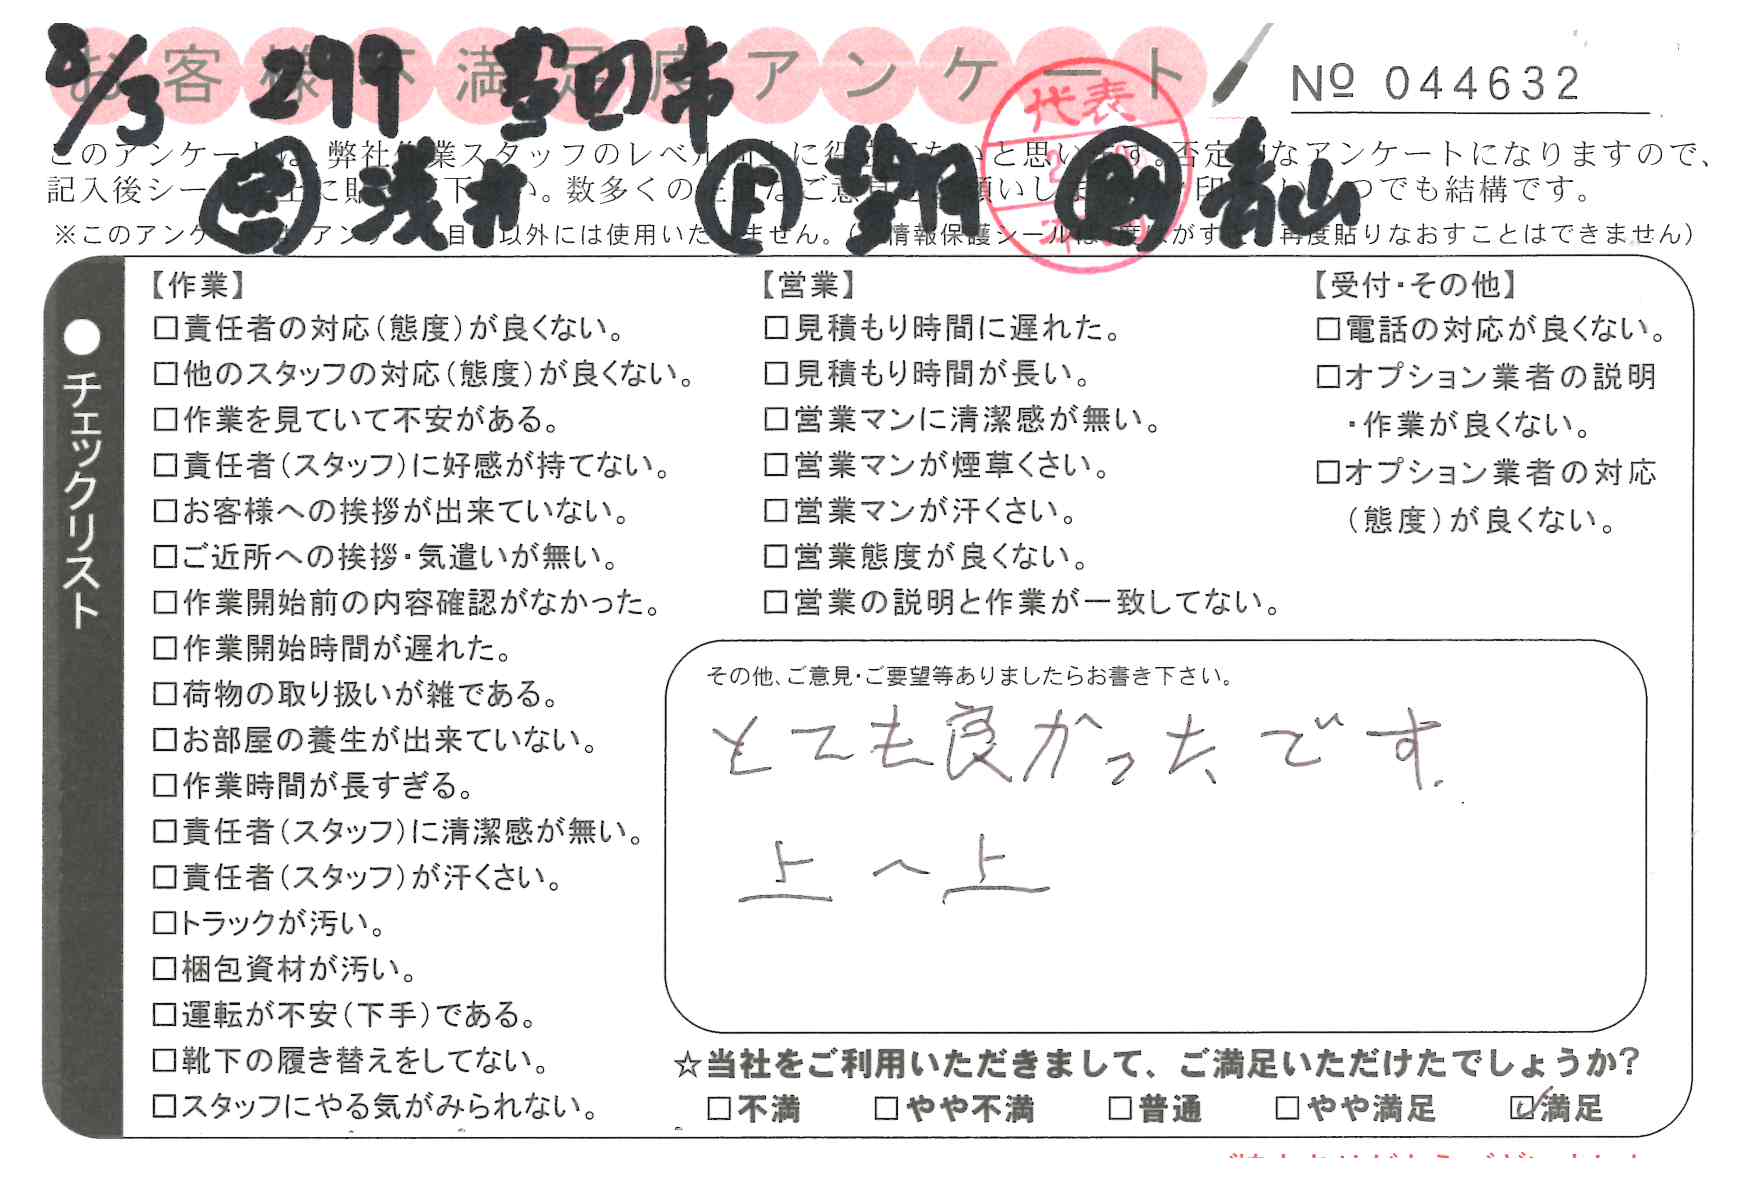 お客様不満足度アンケート
№ 044632
2/3 299 豊田市
浅井 上 青山
このアンケートは、弊社作業スタッフのレベル向上に役立てたいと思います。否定的なアンケートになりますので、
記入後シールを上に貼って下さい。数多くの正直なご意見をお願いします。 印はいくつでも結構です。
※このアンケートはアンケート目的以外には使用いたしません。(個人情報保護シールは1度はがすと、再度貼りなおすことはできません)
代表
●チェックリスト
【作業】
□責任者の対応(態度)が良くない。
□他のスタッフの対応(態度)が良くない。
□作業を見ていて不安がある。
□責任者(スタッフ)に好感が持てない。
□お客様への挨拶が出来ていない。
□ご近所への挨拶・気遣いが無い。
□作業開始前の内容確認がなかった。
□作業開始時間が遅れた。
□荷物の取り扱いが雑である。
□お部屋の養生が出来ていない。
□作業時間が長すぎる。
□責任者(スタッフ)に清潔感が無い。
□責任者(スタッフ)が汗くさい。
□トラックが汚い。
□梱包資材が汚い。
□運転が不安(下手)である。
□靴下の履き替えをしてない。
□スタッフにやる気がみられない。
【営業】
□見積もり時間に遅れた。
□見積もり時間が長い。
□営業マンに清潔感が無い。
□営業マンが煙草くさい。
□営業マンが汗くさい。
□営業態度が良くない。
□営業の説明と作業が一致してない。
【受付・その他】
□電話の対応が良くない。
□オプション業者の説明
・作業が良くない。
□オプション業者の対応
(態度)が良くない。
その他、ご意見・ご要望等ありましたらお書き下さい。
とても良かったです.
上〜上
☆当社をご利用いただきまして、ご満足いただけたでしょうか?
□不満 □やや不満 □普通 □やや満足 ☑満足